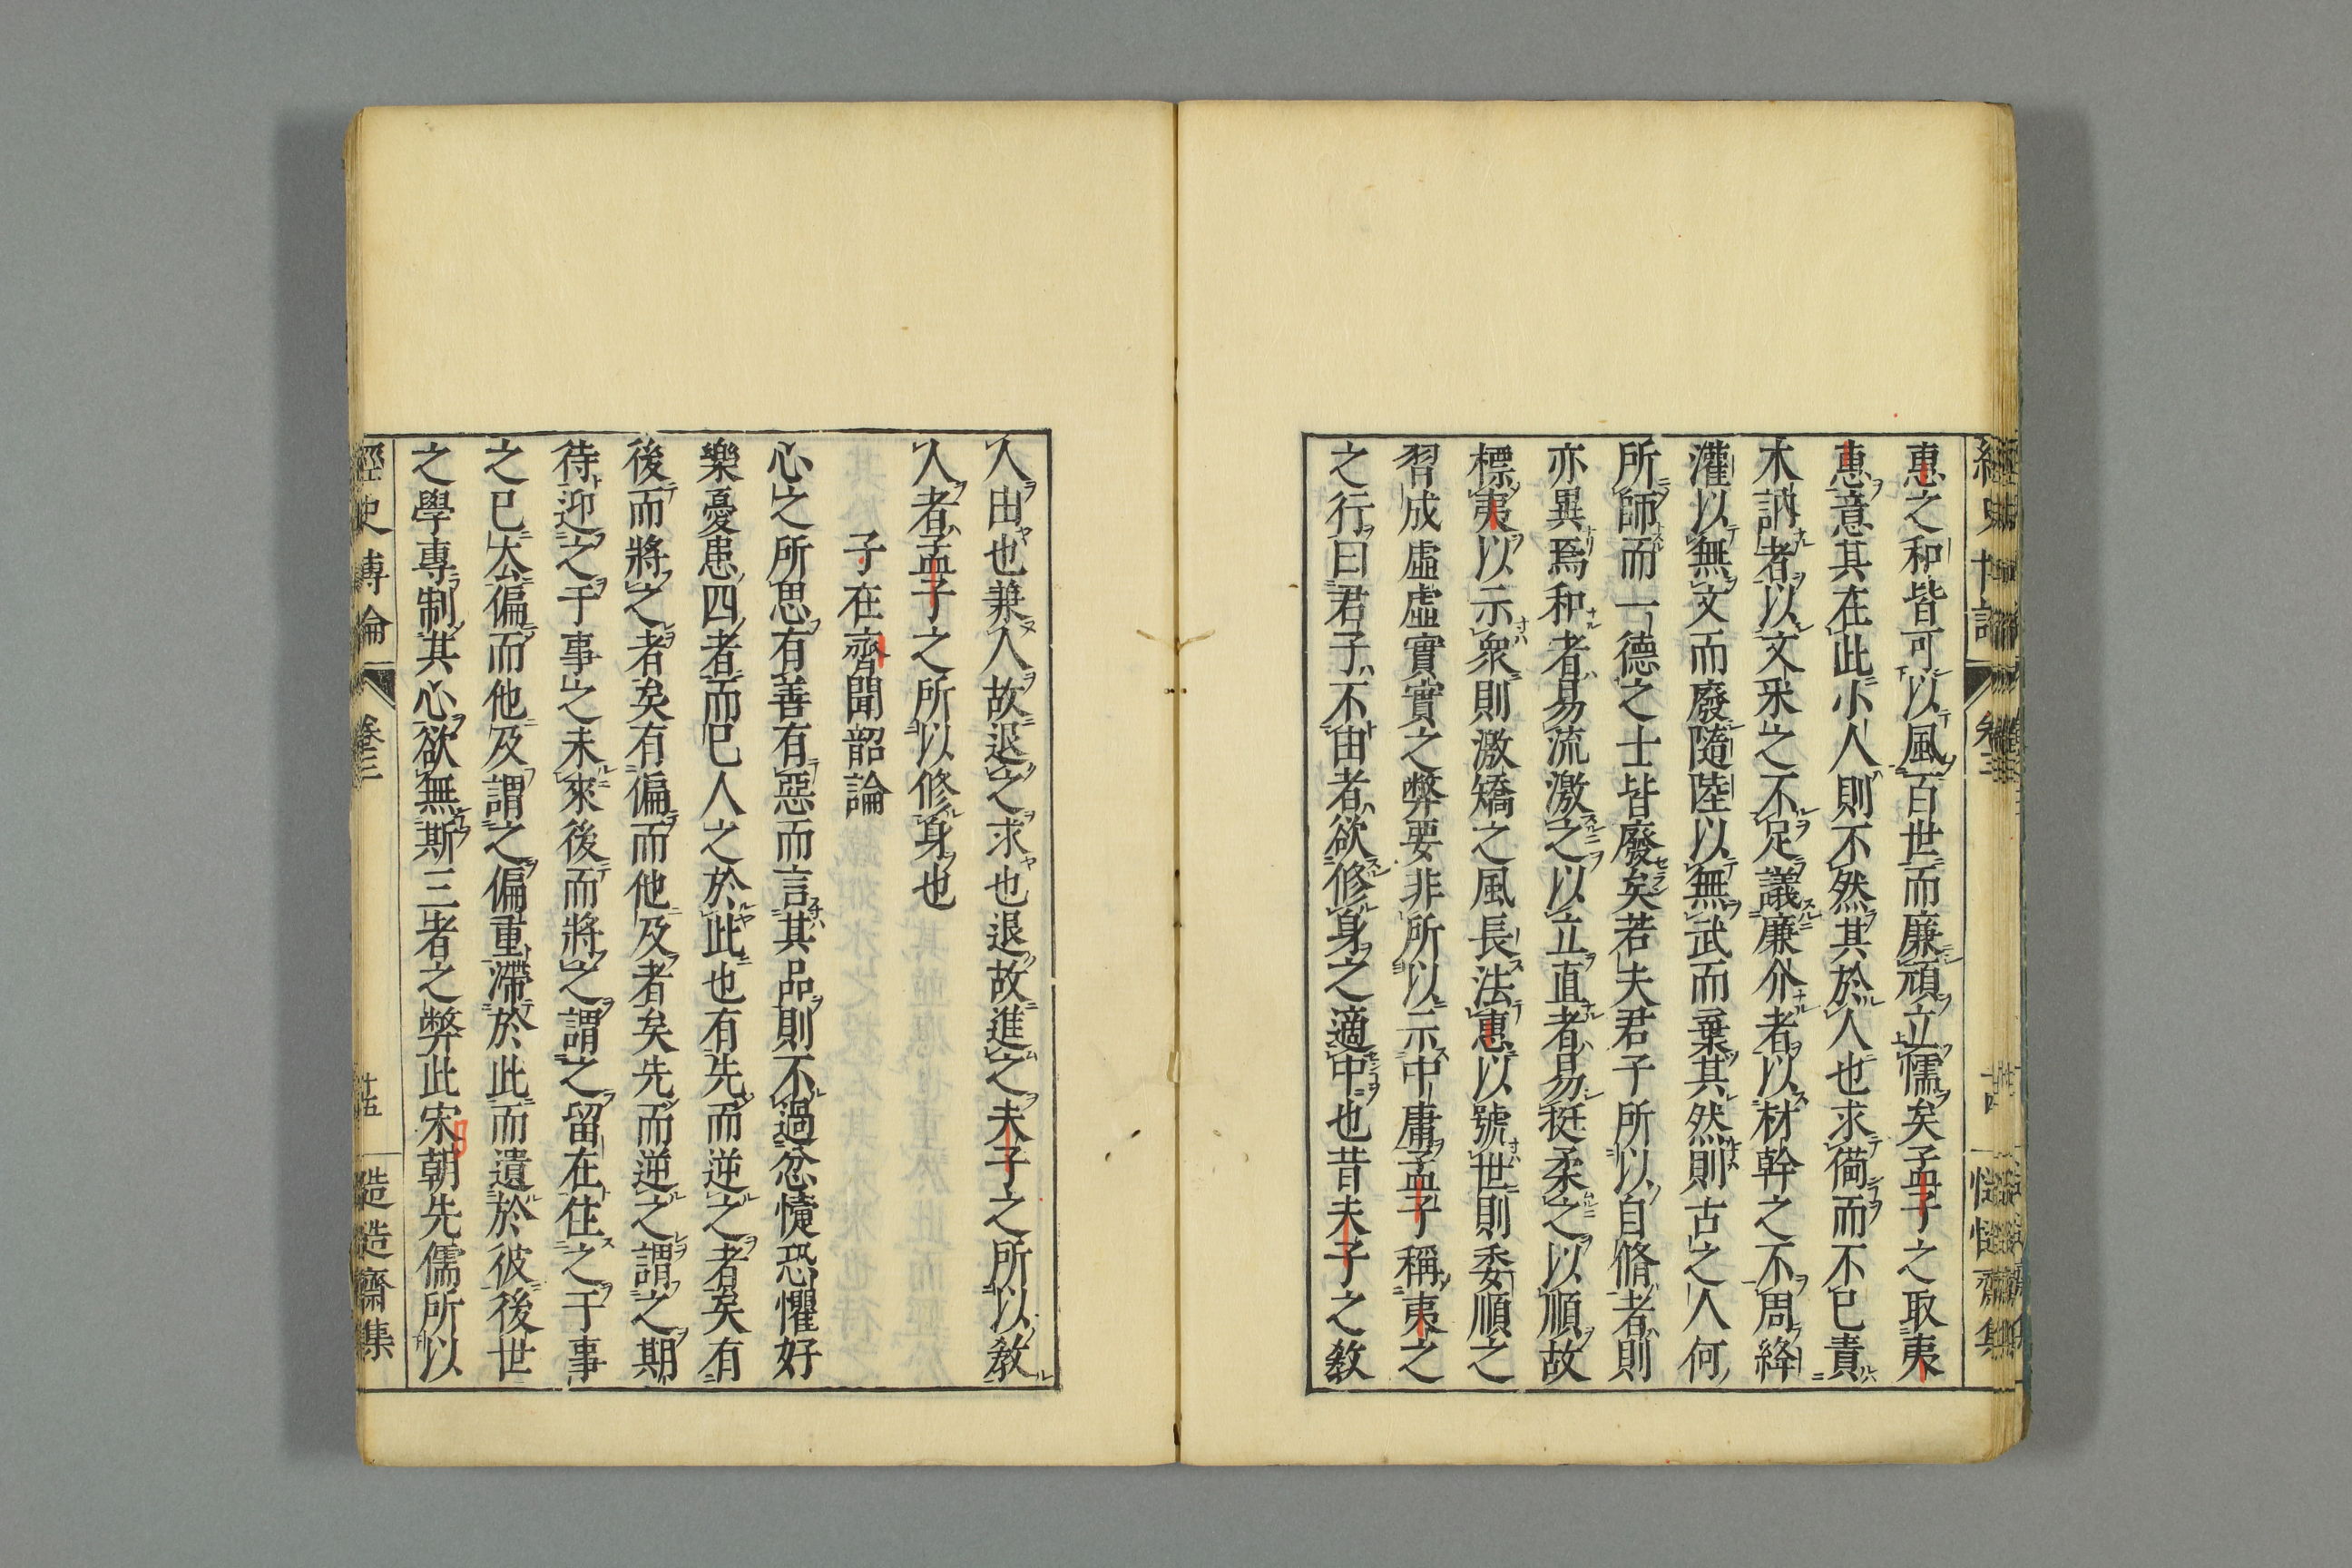 惠之和皆可以風百世而廉頑立懦矣孟子之取夷
惠意其在此小人則不然其於人也求備而不已責
木訥者以文釆之不足議廉介者以材幹之不周絳
灌以無文而廢隨陸以無武而棄其然則古之人何
所師而一德之士皆廢矣若夫君子所以自脩者則
亦異焉和者易流激之以立直者易挺柔之以順故
標夷以示衆則激矯之風長法惠以號世則委順之
習成虛虛實實之弊要非所以示中庸孟子稱夷之
之行曰君子不由者欲修身之適中也昔夫子之敎
人由也兼人故退之求也退故進之夫子之所以敎
人者孟子之所以修身也
子在齊聞韶論
心之所思有善有惡而言其品則不過忿懥恐懼好
樂憂患四者而已人之於此也有先而逆之者矣有
後而將之者矣有偏而他及者矣先而逆之謂之期
待迎之于事之未來後而將之謂之留在住之于事
之已去偏而他及謂之偏重滯於此而遺於彼後世
之學專制其心欲無斯三者之弊此宋朝先儒所以
經史博論
卷三
十五
慥慥齋集